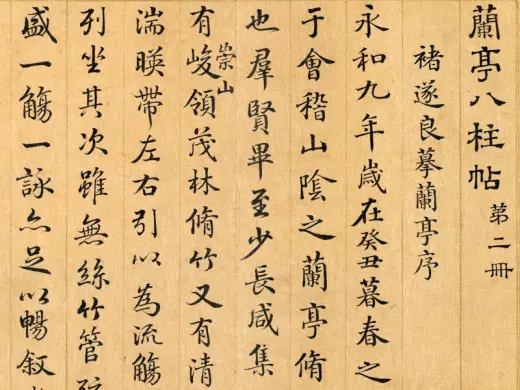 蘭亭八柱帖 第二冊
褚遂良摹蘭亭序
永和九年歲在癸丑暮春之
于會稽山陰之蘭亭脩
也羣賢畢至少長咸集
有崇山峻領茂林脩竹又有清
湍暎帶左右引以為流觴
列坐其次雖無絲竹管
盛一觴一詠亦足以暢敘